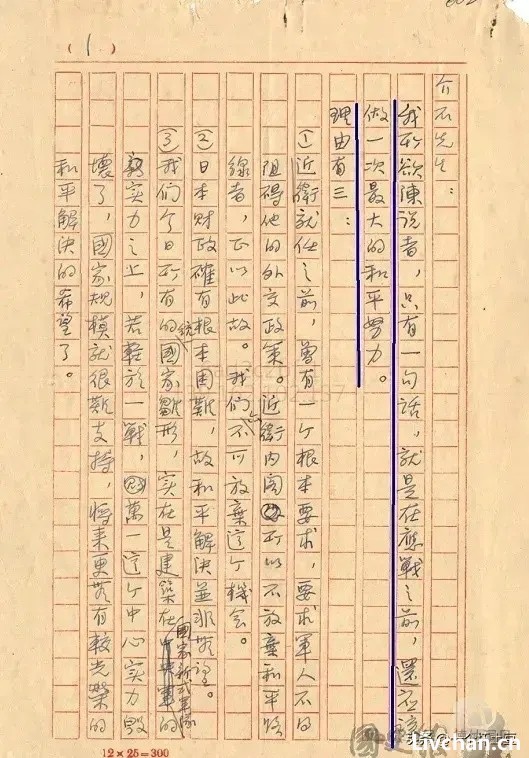 (1)
介石先生：
我所欲陳說者，只有一句話，就是在應戰之前，還应該
做一次最大的和平努力。
理由有三：
①近衛就任之前，曾有一个根本要求，要求軍人不得
阻碍他的外交政策。近衛内閣所以不放棄和平路
線者，正以此故。我们亦不可放棄這个機会。
②日本財政確有根本困難，故和平解決並非無望。
③我们今日所有的統一國家雛形，实在是建築在國家新式軍隊的
实力之上，若輕於一戰，萬一這个中心实力毀
壞了，國家規模就很難支持，將来更無有較光榮的
和平解決的希望了。
12×25=300
Livchan.cn